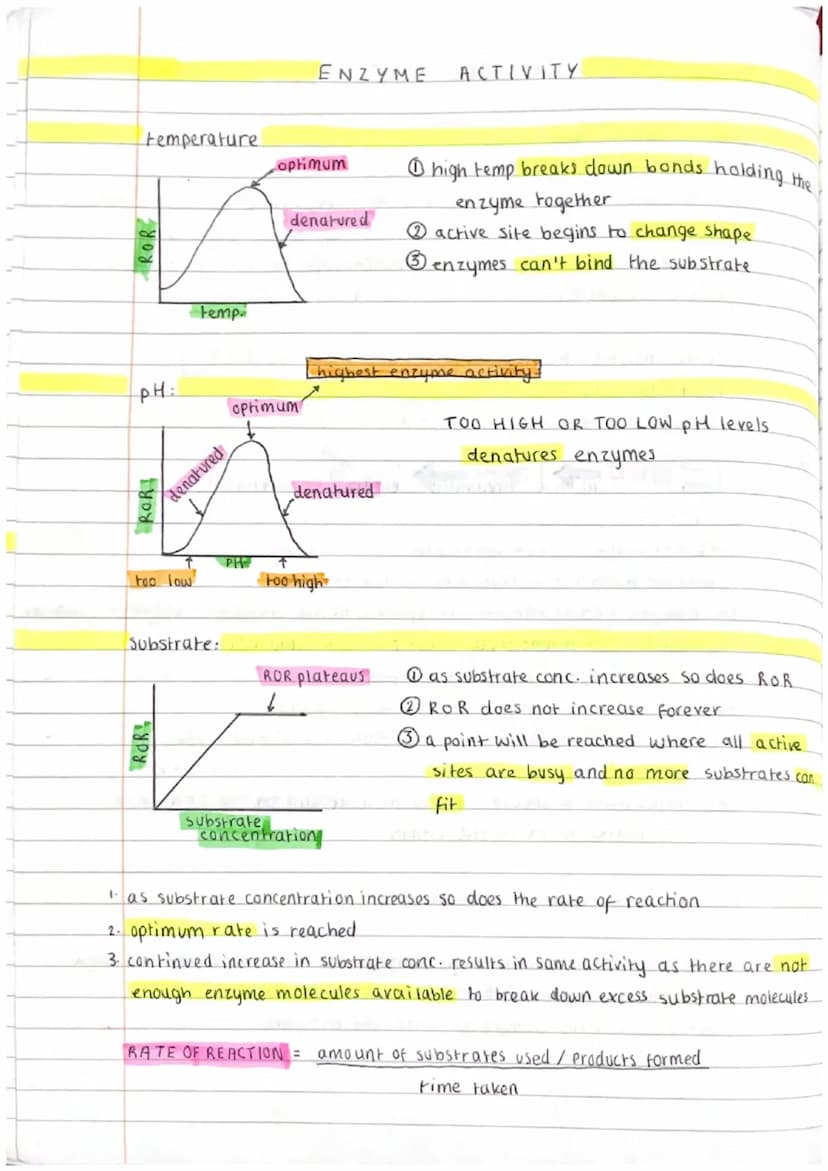 ENZYME ACTIVITY
temperature
optimum
denatured
ROR
temp.
① high temp breaks down bonds holding the
enzyme together
② active site begins to change shape
③ enzymes can't bind the substrate
highest enzyme activity
pH:
optimum
denatured
denatured
ROR
pH
too low
too high
TOO HIGH OR TOO LOW pH levels
denatures enzymes
substrate:
ROR plateaus
ROR
substrate
concentration
① as substrate conc. increases so does RoR
② RoR does not increase forever
③ a point will be reached where all active
sites are busy and no more substrates can
fit
1. as substrate concentration increases so does the rate of reaction
2. optimum rate is reached
3. continued increase in substrate conc. results in same activity as there are not
enough enzyme molecules available to break down excess substrate molecules
RATE OF REACTION = amount of substrates used / products formed
time taken